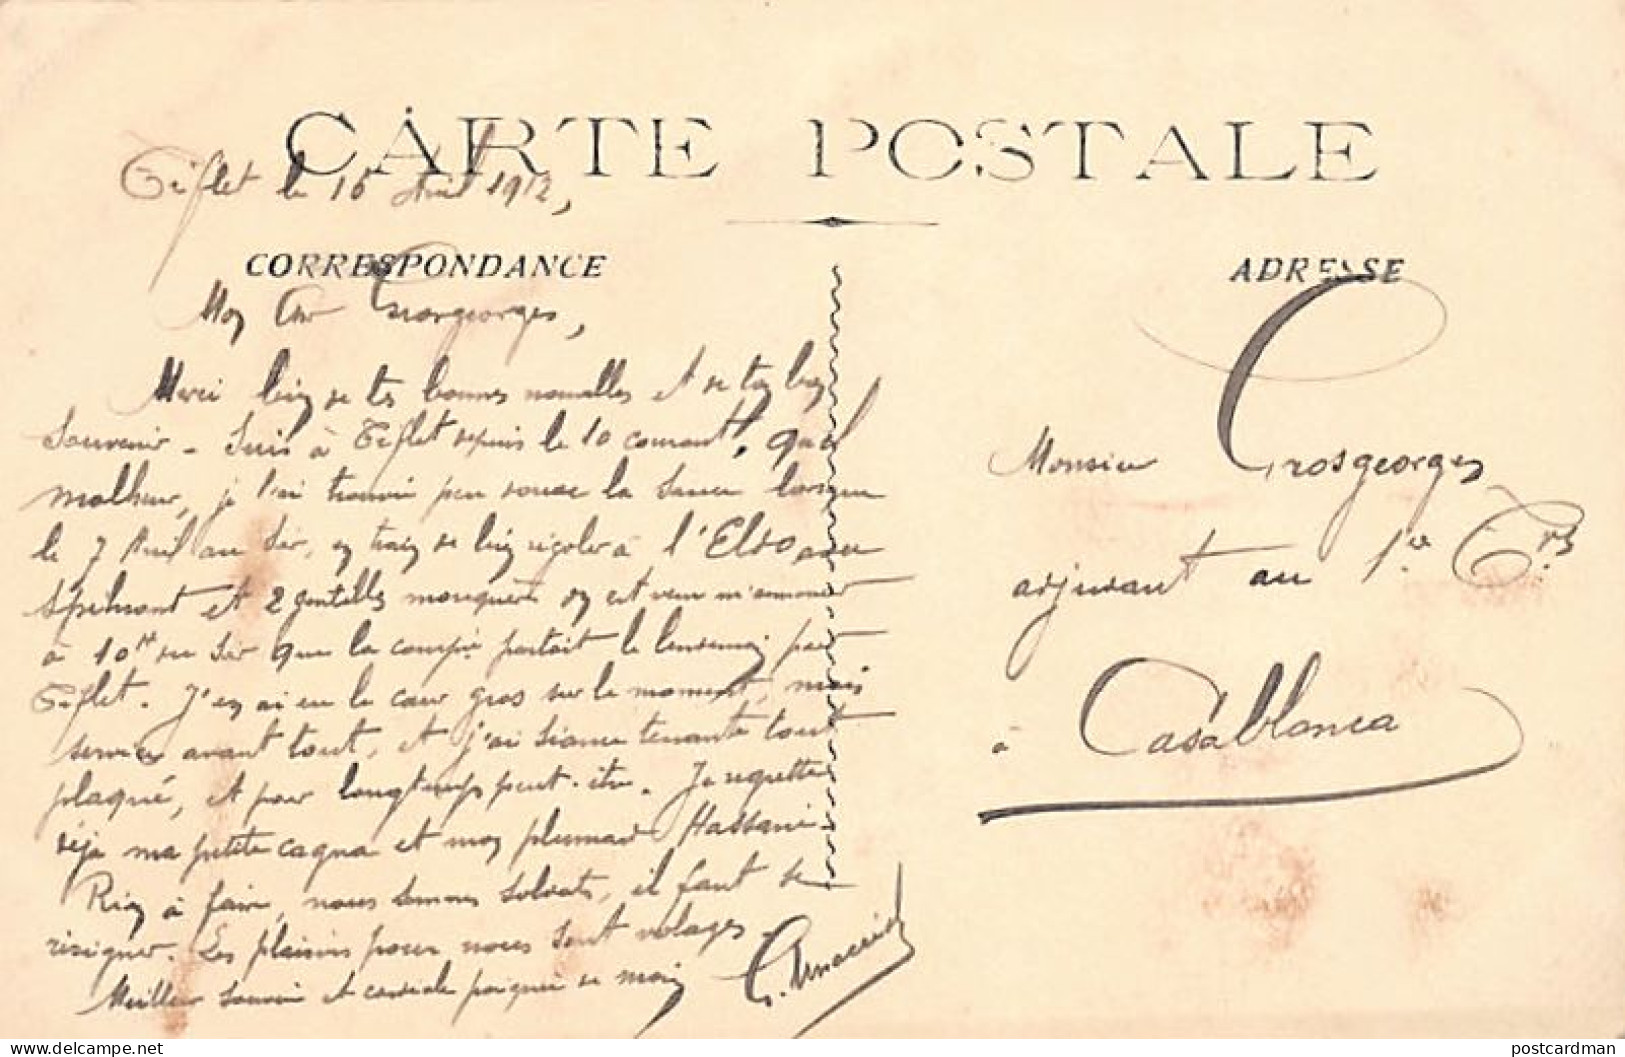 CARTE POSTALE
Tiflet le 16 Avril 1912,
CORRESPONDANCE
ADRESSE
Mon Cher Grosgeorges,
Merci bien de tes bonnes nouvelles et de ton bon
souvenir - Suis à Tiflet depuis le 10 courant, quel
malheur, je l'ai trouvé peu douce la lorsque
le 7 Avril au soir, en train de bien rigoler à l'Eldo avec
et 2 gentilles on est venu m'annoncer
à 10H du soir que la compie partait le lendemain pour
Tiflet. J'en ai eu le cœur gros sur le moment, mais
service avant tout, et j'ai séance tenante tout
plaqué, et pour longtemps peut-être. Je regrette
déjà ma petite cagna et mon plumard Hassani -
Rien à faire, nous sommes soldats, il faut se
résigner. Les plaisirs pour nous sont volages -
Meilleur souvenir et cordiale poignée de main
Monsieur Grosgeorges
adjudant au 1er
à Casablanca
postcardman
www.delcampe.net